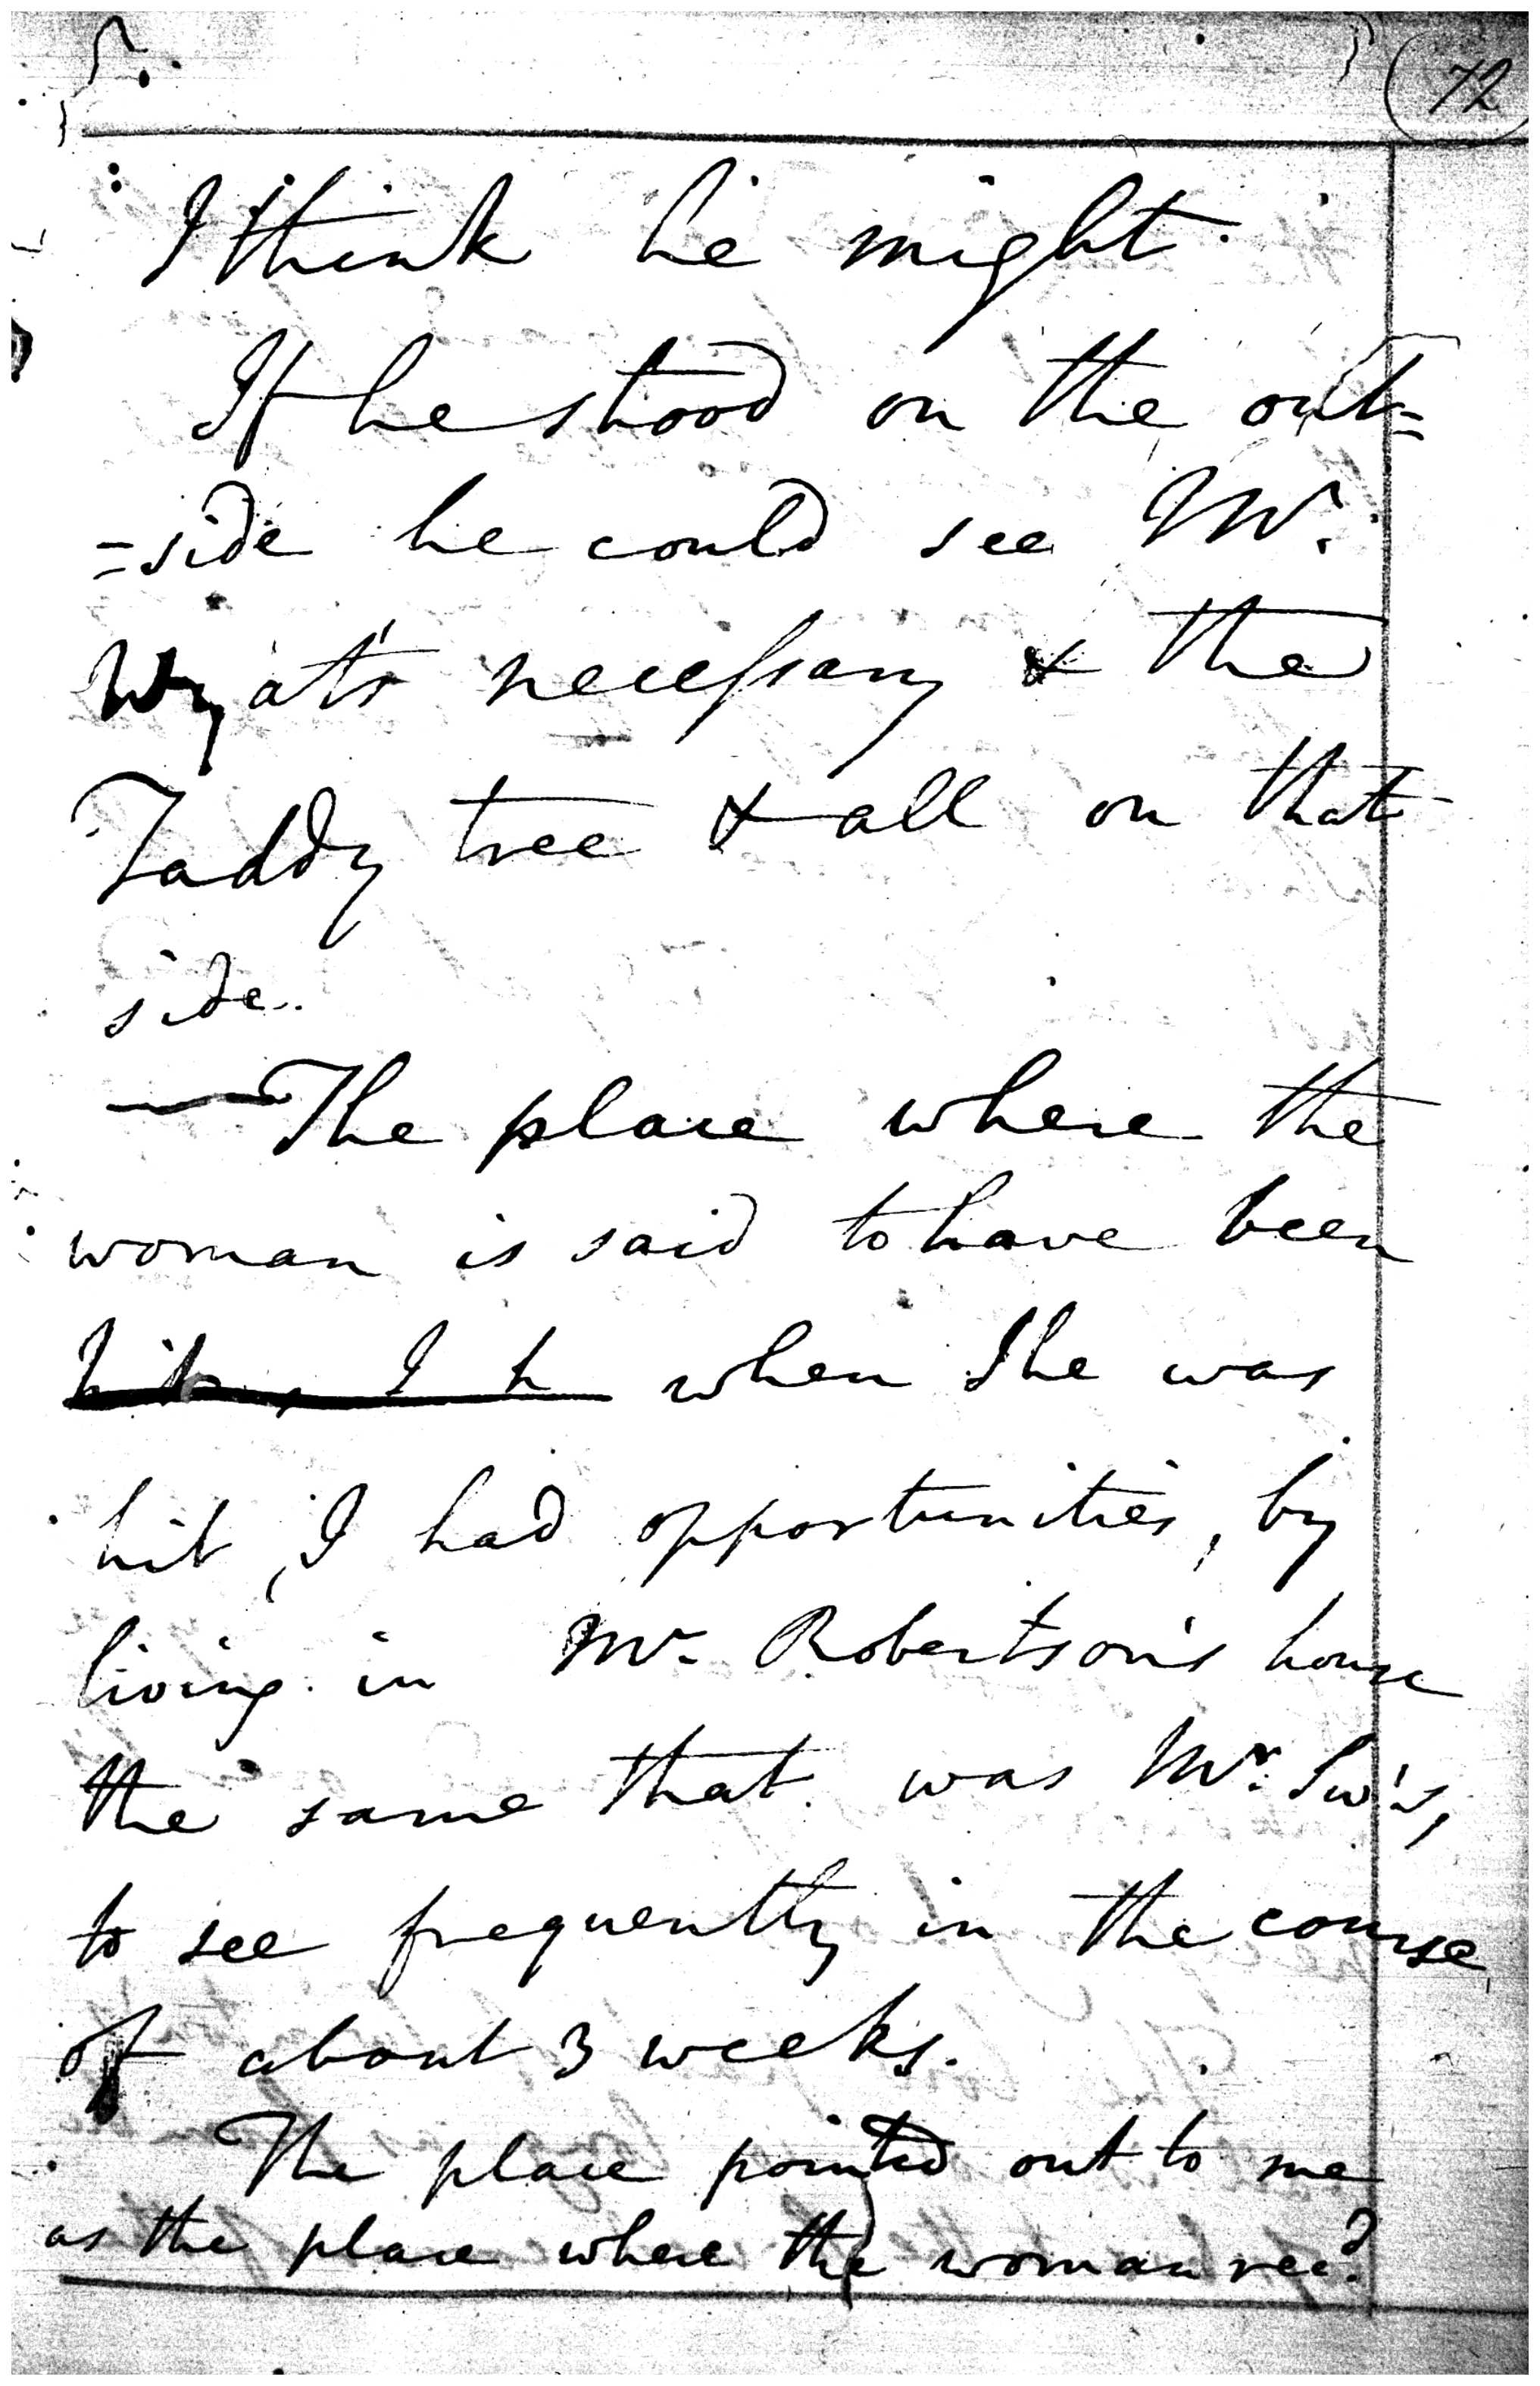 72
I think he might.
If he stood on the out=
=side he could see Mr.
Wyat's necessary & the
Taddy tree & all on that
side.
— The place where the
woman is said to have been
hit, I h when She was
hit, I had opportunities, by
living in Mr. Robertson's house
the same that was Mr. Sw's,
to see frequently in the course
of about 3 weeks.
The place pointed out to me
as the place where the woman recd.